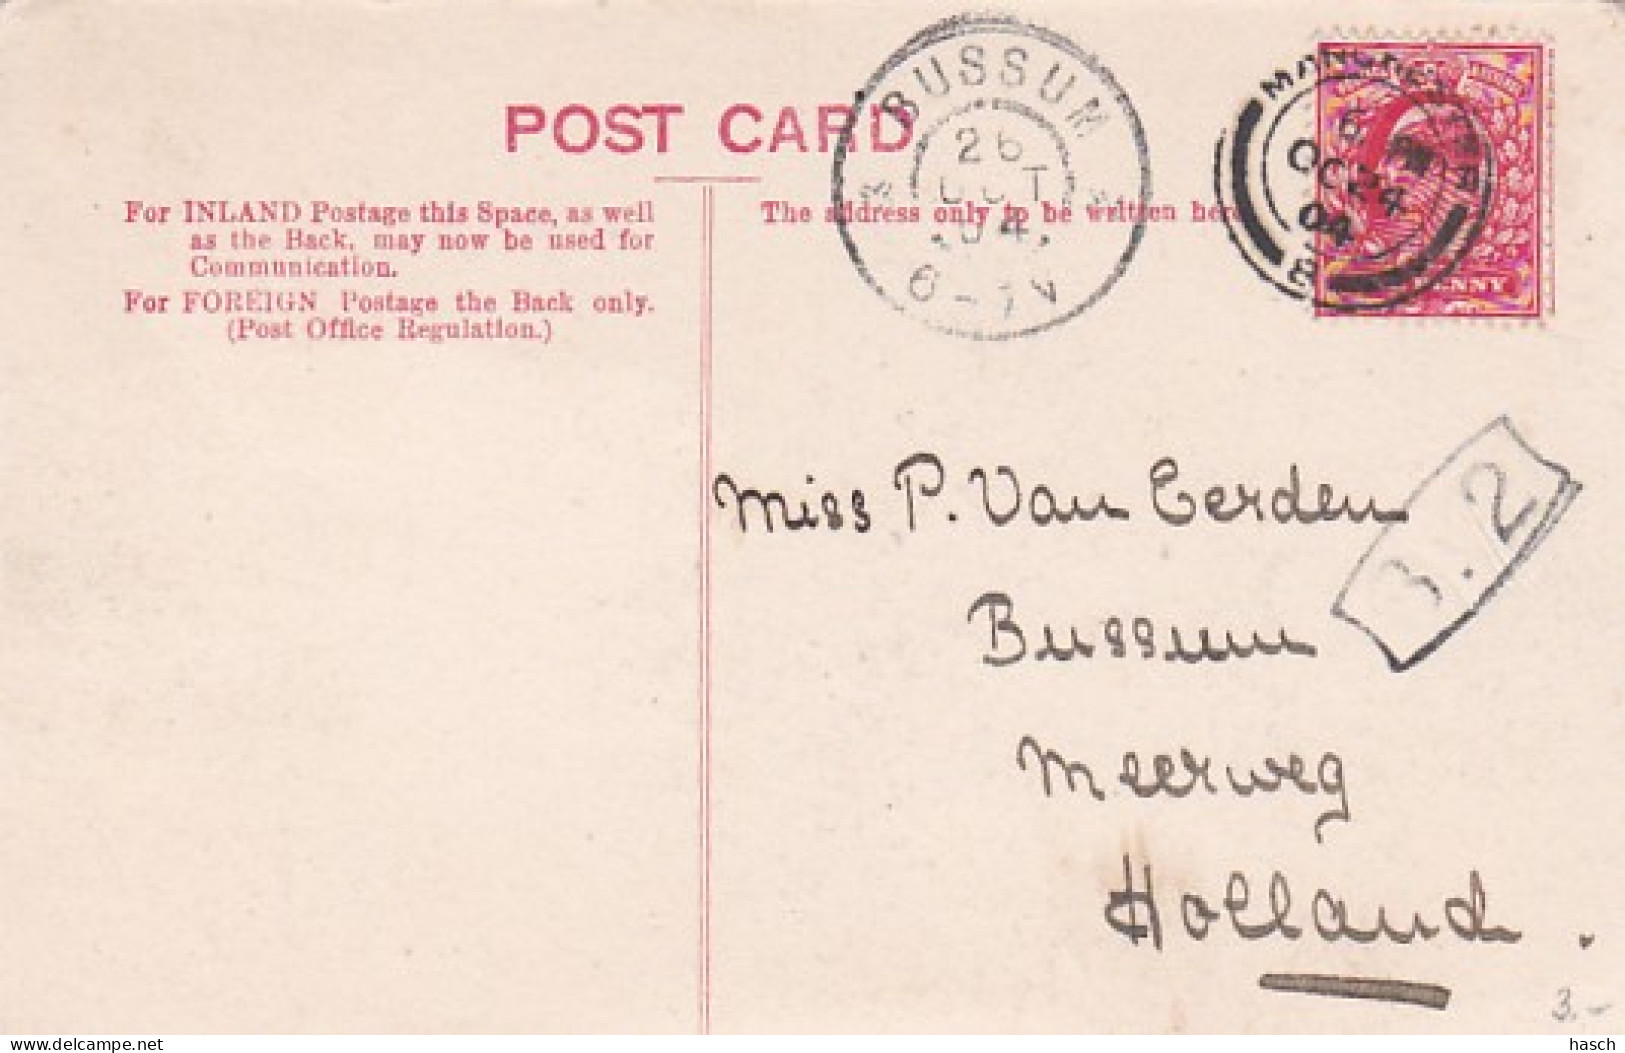 POST CARD
For INLAND Postage this Space, as well
as the Back, may now be used for
Communication.
For FOREIGN Postage the Back only.
(Post Office Regulation.)
The address only to be written here
BUSSUM
26
OCT
04.
6-7V
MANCHESTER
OC 24
04
PENNY
Miss P. Van Eerden
Bussum
Meerweg
Holland.
3.2
3.-
delcampe.net
hasch